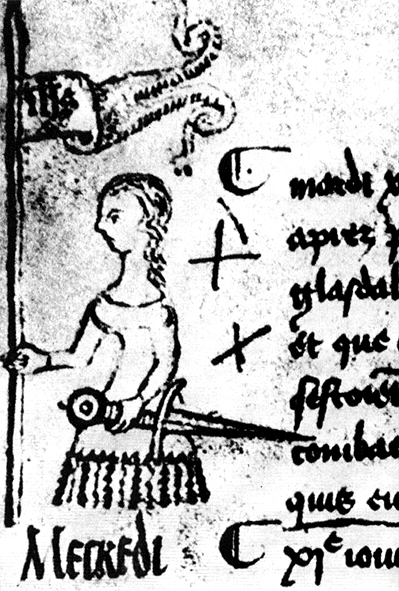 ihs
mardi x
apres p
glasdal
et que
sestoien
comba
quis eu
Mecredi
xje iou